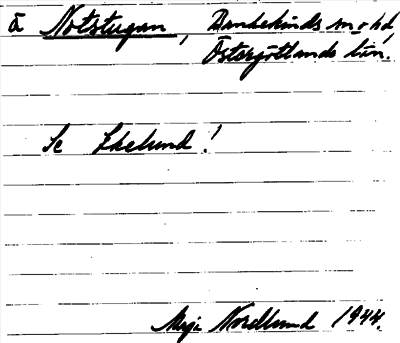 å Notstugan, Dunkehinds sn o hd,
Östergötlands län.
Se Ekelund!
Maja Nordlund 1944.